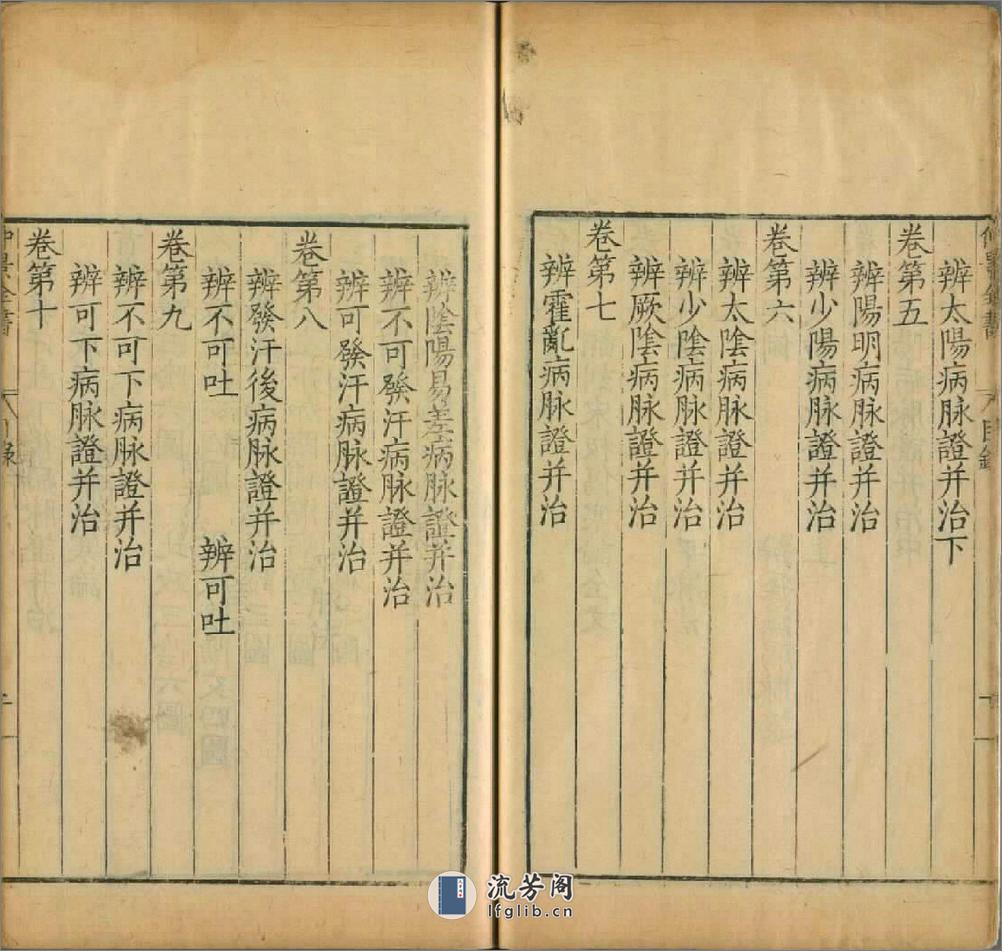 辨太陽病脉證并治下
卷第五
辨陽明病脉證并治
辨少陽病脉證并治
卷第六
辨太陰病脉證并治
辨少陰病脉證并治
辨厥陰病脉證并治
卷第七
辨霍亂病脉證并治
辨陰陽易差病脉證并治
辨不可發汗病脉證并治
辨可發汗病脉證并治
卷第八
辨發汗後病脉證并治
辨不可吐 辨可吐
卷第九
辨不可下病脉證并治
辨可下病脉證并治
卷第十
流芳阁
lfglib.cn